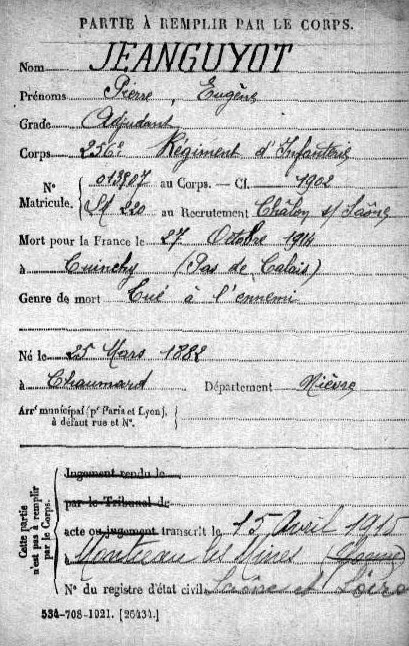 PARTIE À REMPLIR PAR LE CORPS.
Nom JEANGUYOT
Prénoms Pierre, Eugène
Grade Adjudant
Corps 256e Régiment d'Infanterie
N° Matricule. { 013787 au Corps. — Cl. 1902
St 220 au Recrutement Châlon s/ Saône
Mort pour la France le 27 Octobre 1914
à Cuinchy (Pas de Calais)
Genre de mort Tué à l'ennemi
Né le 25 Mars 1882
à Chaumard Département Nièvre
Arrt municipal (pr Paris et Lyon), à défaut rue et N°. {
Cette partie n'est pas à remplir par le Corps. {
Jugement rendu le
par le Tribunal de
acte ou jugement transcrit le 15 Avril 1915
à Montceau les Mines
N° du registre d'état civil Saône et Loire
534-708-1921. [26434.]